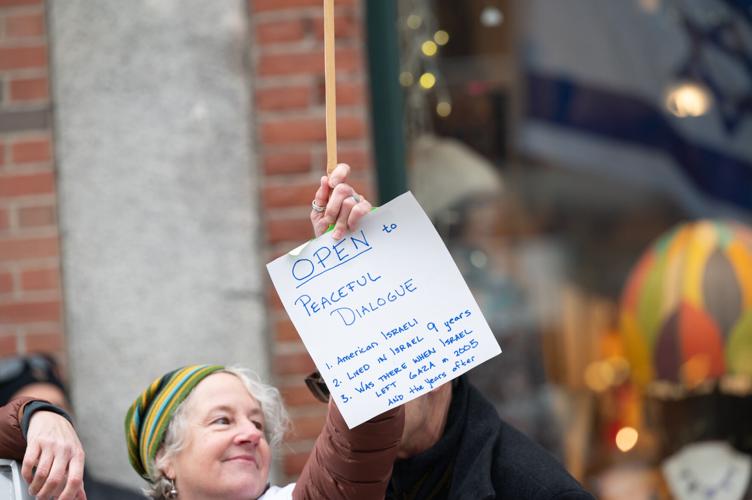 OPEN to
PEACEFUL
DIALOGUE
1. American ISRAELI
2. LIVED IN ISRAEL 9 years
3. WAS THERE WHEN ISRAEL
LEFT GAZA in 2005
AND the years after